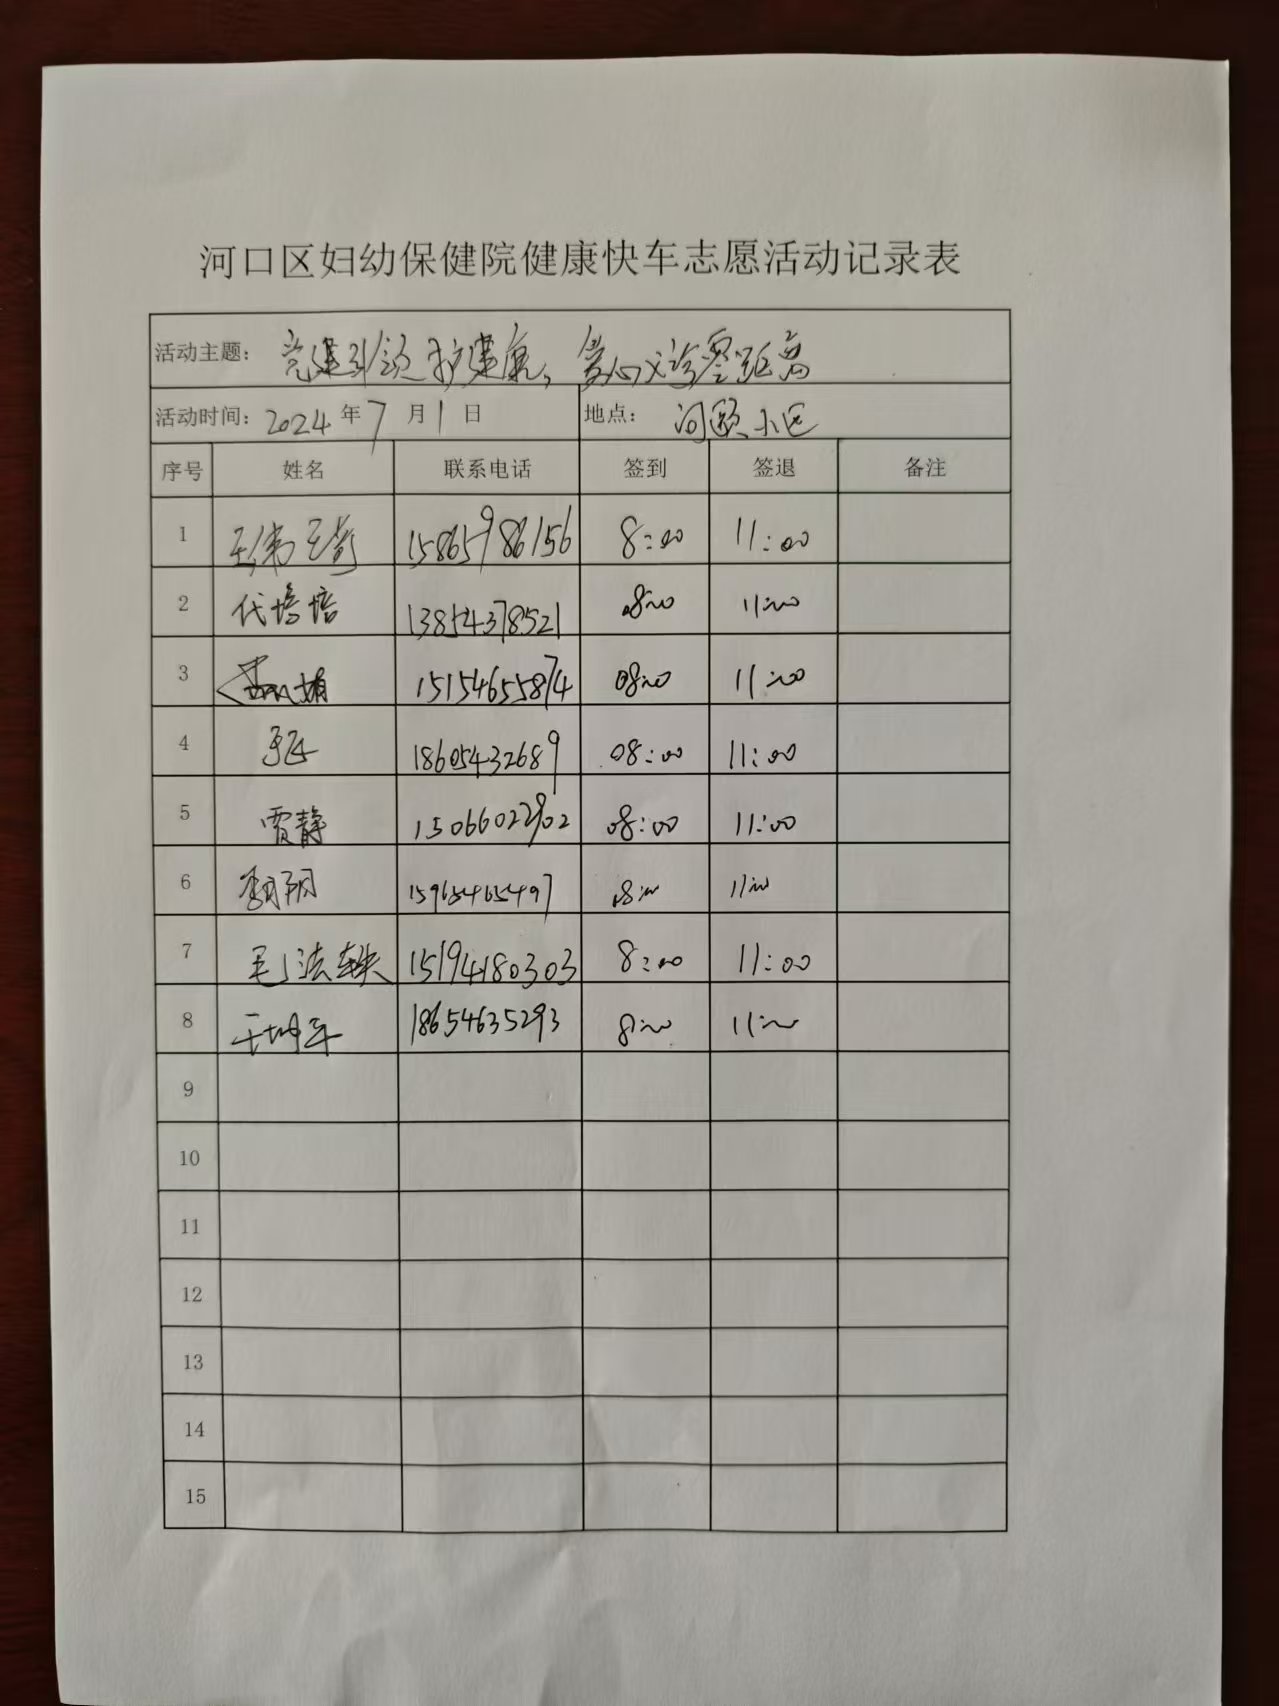 河口区妇幼保健院健康快车志愿活动记录表
活动主题： 党建引领护健康，爱心义诊零距离
活动时间：2024年7月1日 地点： 河颐小区
序号 姓名 联系电话 签到 签退 备注
1 15865986156 8:00 11:00
2 代培培 13854378521 08:00 11:00
3 15154655874 08:00 11:00
4 18605432689 08:00 11:00
5 贾静 15066022902 08:00 11:00
6 李明阳 15965465497 08:00 11:00
7 毛法轶 15194180303 8:00 11:00
8 18654635293 8:00 11:00
9
10
11
12
13
14
15